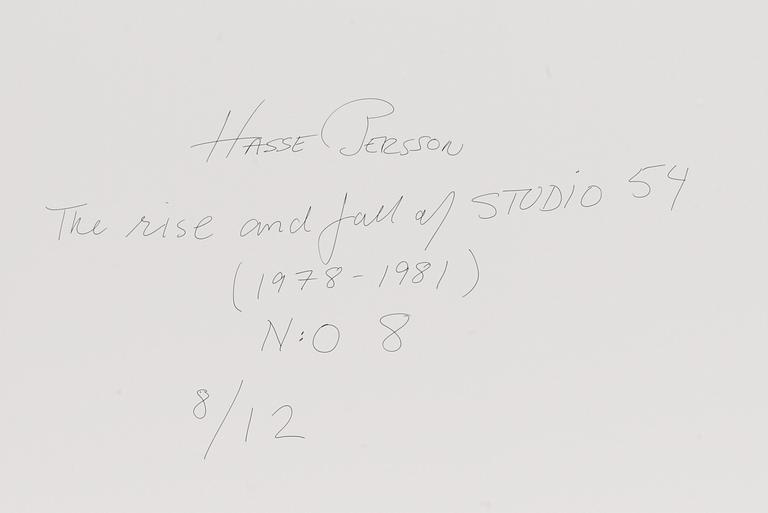 HASSE PERSSON
The rise and fall of STUDIO 54
(1978-1981)
N:O 8
8/12